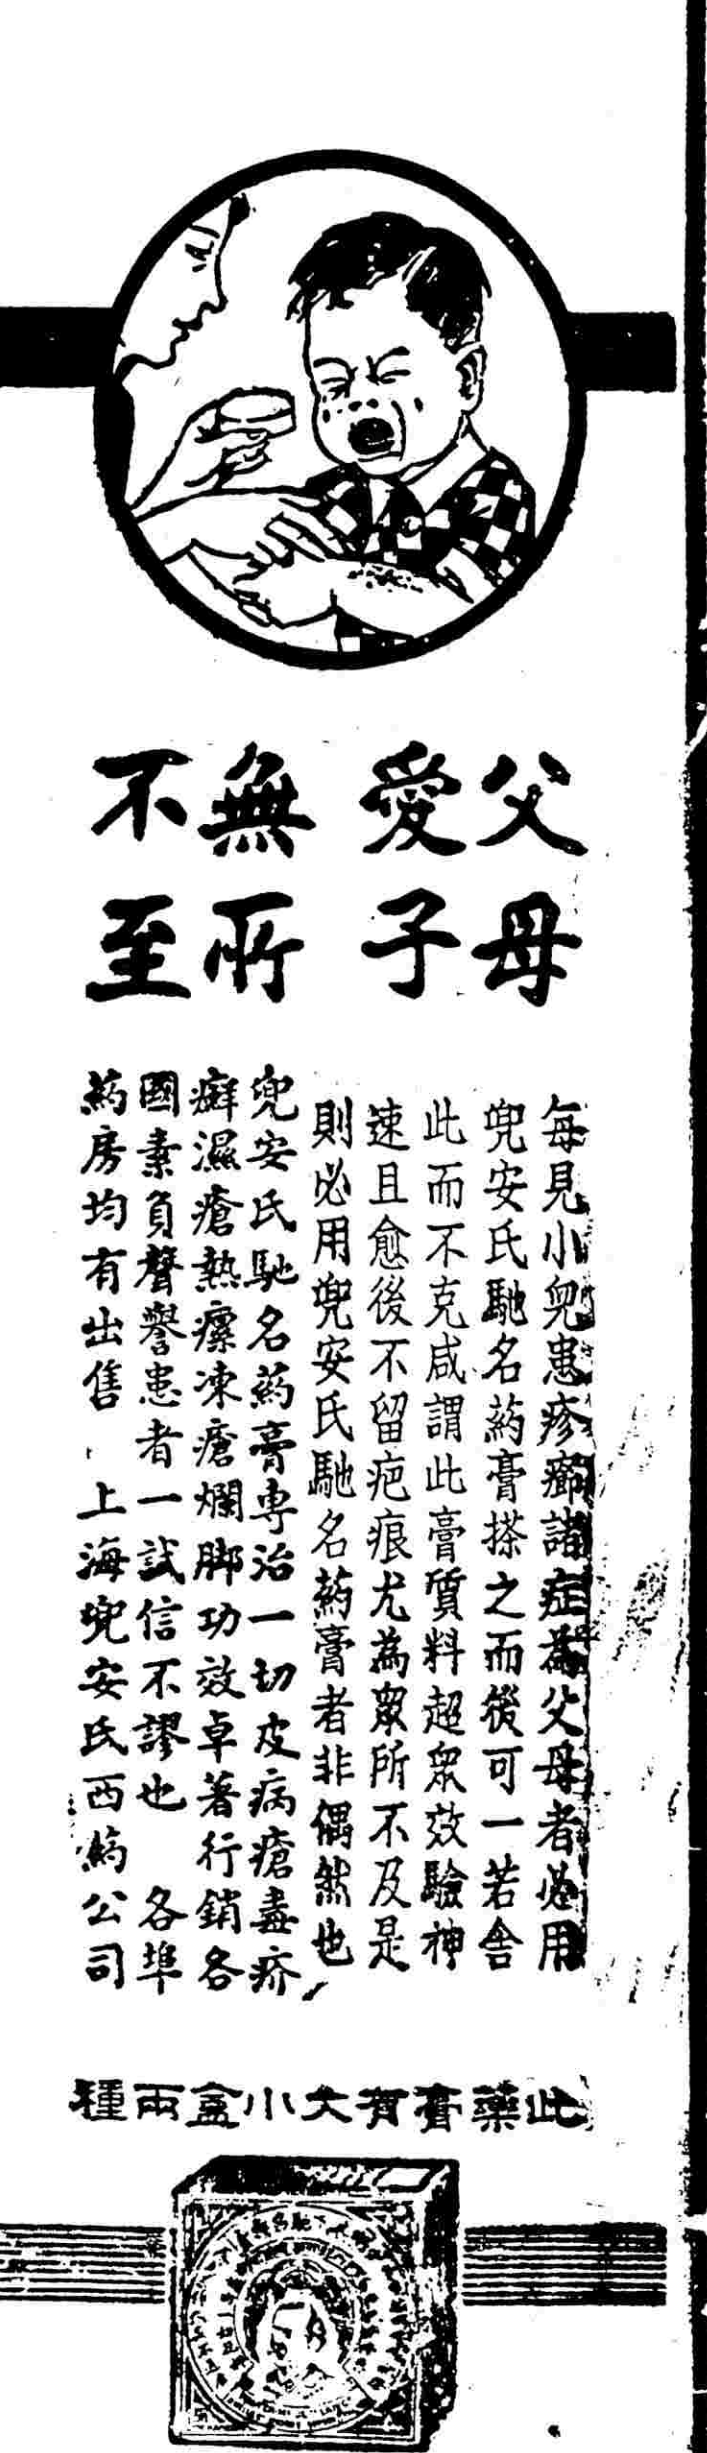 父母
愛子
無所
不至
每見小兒患疹癤諸症為父母者必用
兜安氏馳名葯膏搽之而後可一若舍
此而不克咸謂此膏質料超眾效驗神
速且愈後不留疤痕尤為眾所不及是
則必用兜安氏馳名葯膏者非偶然也
兜安氏馳名葯膏專治一切皮病瘡毒疥
癬濕瘡熱瘰凍瘡爛脚功效卓著行銷各
國素負聲譽患者一試信不謬也 各埠
葯房均有出售 上海兜安氏西葯公司
此藥膏有大小盒兩種